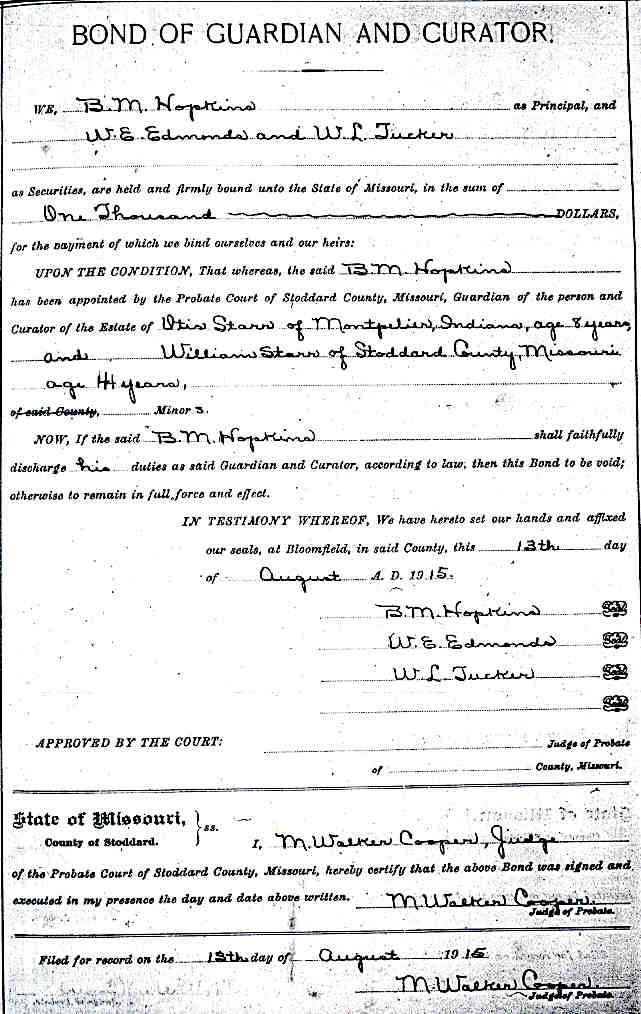 BOND OF GUARDIAN AND CURATOR.
WE, B.M. Hopkins as Principal, and
W.E. Edmonds and W.L. Tucker
as Securities, are held and firmly bound unto the State of Missouri, in the sum of
One Thousand DOLLARS,
for the payment of which we bind ourselves and our heirs:
UPON THE CONDITION, That whereas, the said B.M. Hopkins
has been appointed by the Probate Court of Stoddard County, Missouri, Guardian of the person and
Curator of the Estate of Otis Starr of Montpelier, Indiana, age 8 years,
and William Starr of Stoddard County, Missouri
age years,
of said County, Minor s.
NOW, If the said B.M. Hopkins shall faithfully
discharge his duties as said Guardian and Curator, according to law, then this Bond to be void;
otherwise to remain in full force and effect.
IN TESTIMONY WHEREOF, We have hereto set our hands and affixed
our seals, at Bloomfield, in said County, this 13th day
of August A. D. 1915.
B.M. Hopkins Seal
W.E. Edmonds Seal
W.L. Tucker Seal
Seal
APPROVED BY THE COURT: Judge of Probate
of County, Missouri.
State of Missouri, } ss.
County of Stoddard.
I, M. Walker Cooper, Judge
of the Probate Court of Stoddard County, Missouri, hereby certify that the above Bond was signed and
executed in my presence the day and date above written. M. Walker Cooper.
Judge of Probate.
Filed for record on the 13th day of August 1915
M. Walker Cooper.
Judge of Probate.